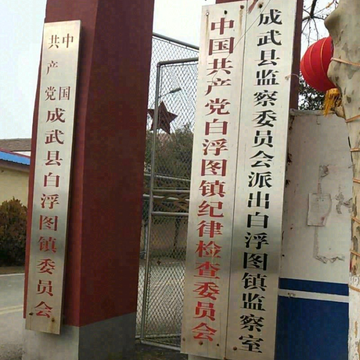 中国共产党成武县白浮图镇委员会
中国共产党白浮图镇纪律检查委员会
成武县监察委员会派出白浮图镇监察室